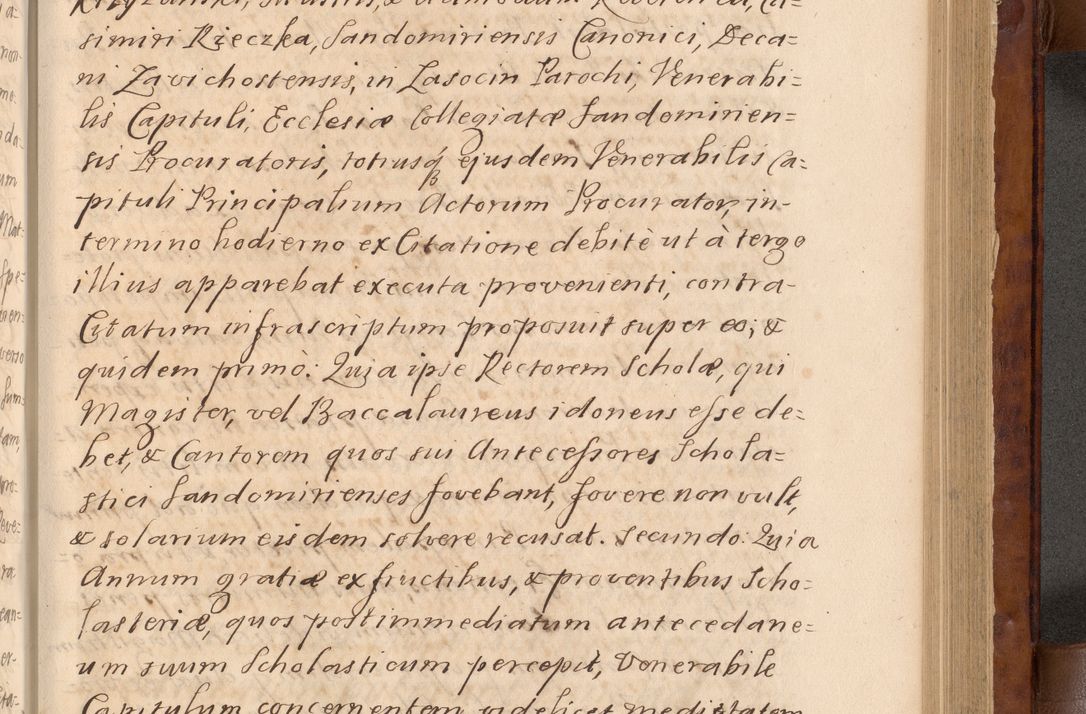 simiri Rzeczka, Sandomiriensis Canonici, Deca=
ni Zavichostensis, in Lasocin Parochi, Venerabi=
lis Capituli, Ecclesiæ Collegiatæ Sandomirien=
sis Procuratoris, totiusq́ꝫ ejusdem Venerabilis Ca=
pituli Principalium Actorum Procurator, in-
termino hodierno ex Citatione debitè ut à tergo
illius apparebat executa provenienti, contra-
Citatum infrascriptum proposuit super eo; &
quidem primò: Quia ipse Rectorem Scholæ, qui
Magister, vel Baccalaureus idoneus esse de=
bet, & Cantorem quos sui Antecessores Schola=
stici Sandomirienses fovebant, fovere non vult,
& solarium eisdem solvere recusat. Secundo: Quia
Annum gratiæ ex fructibus, & proventibus Scho=
lasteriæ, quos post immediatum antecedane=
um suum Scholasticum percepit, Venerabile
Capitulum concernentem videlicet medietatem